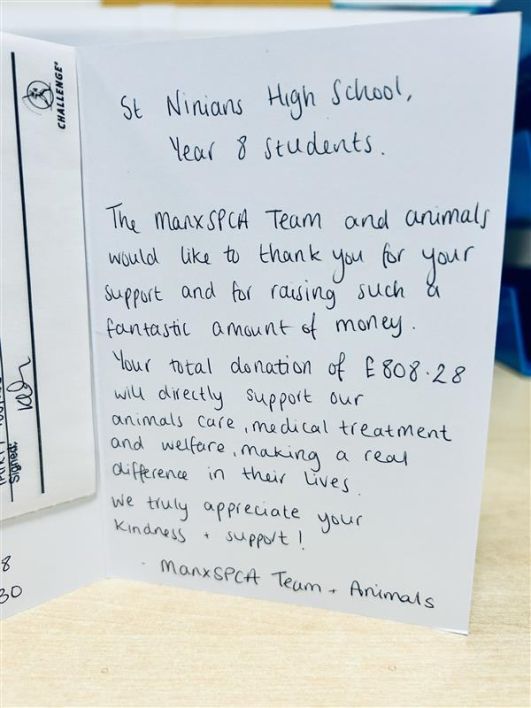 CHALLENGE
Signed:
8
30
St Ninians High School,
Year 8 students.
The ManxSPCA Team and animals
would like to thank you for your
support and for raising such a
fantastic amount of money.
Your total donation of £808.28
will directly support our
animals care, medical treatment
and welfare, making a real
difference in their lives.
We truly appreciate your
kindness + support!
- ManxSPCA Team + Animals